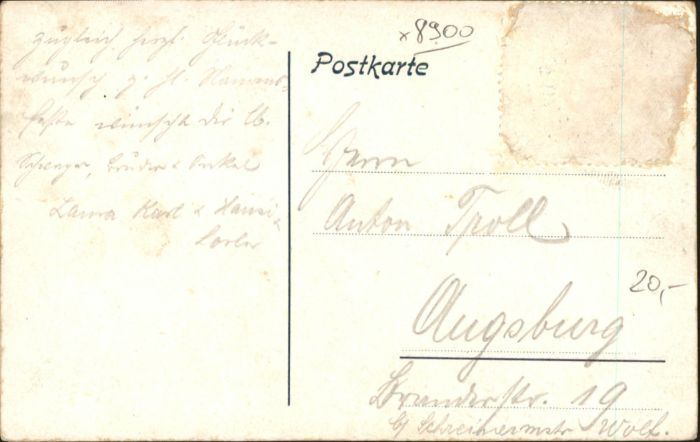 zugleich herzl. Glück-
wunsch z. hl. Namens-
feste wünscht die
Schwager, Bruder & Onkel
Laura Karl & Hansi
x 8900
Postkarte
Herrn
Anton Troll
Augsburg
Branderstr. 19
b/ Schreinermstr Wolf.
20,-